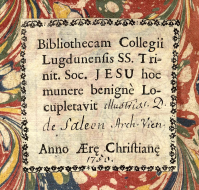 Bibliothecam Collegii
Lugdunensis SS. Tri-
nit. Soc. JESU hoc
munere benignè Lo-
cupletavit illustriss. D.
de Saleon Arch. Vien.
Anno Æræ Christianæ
1750.